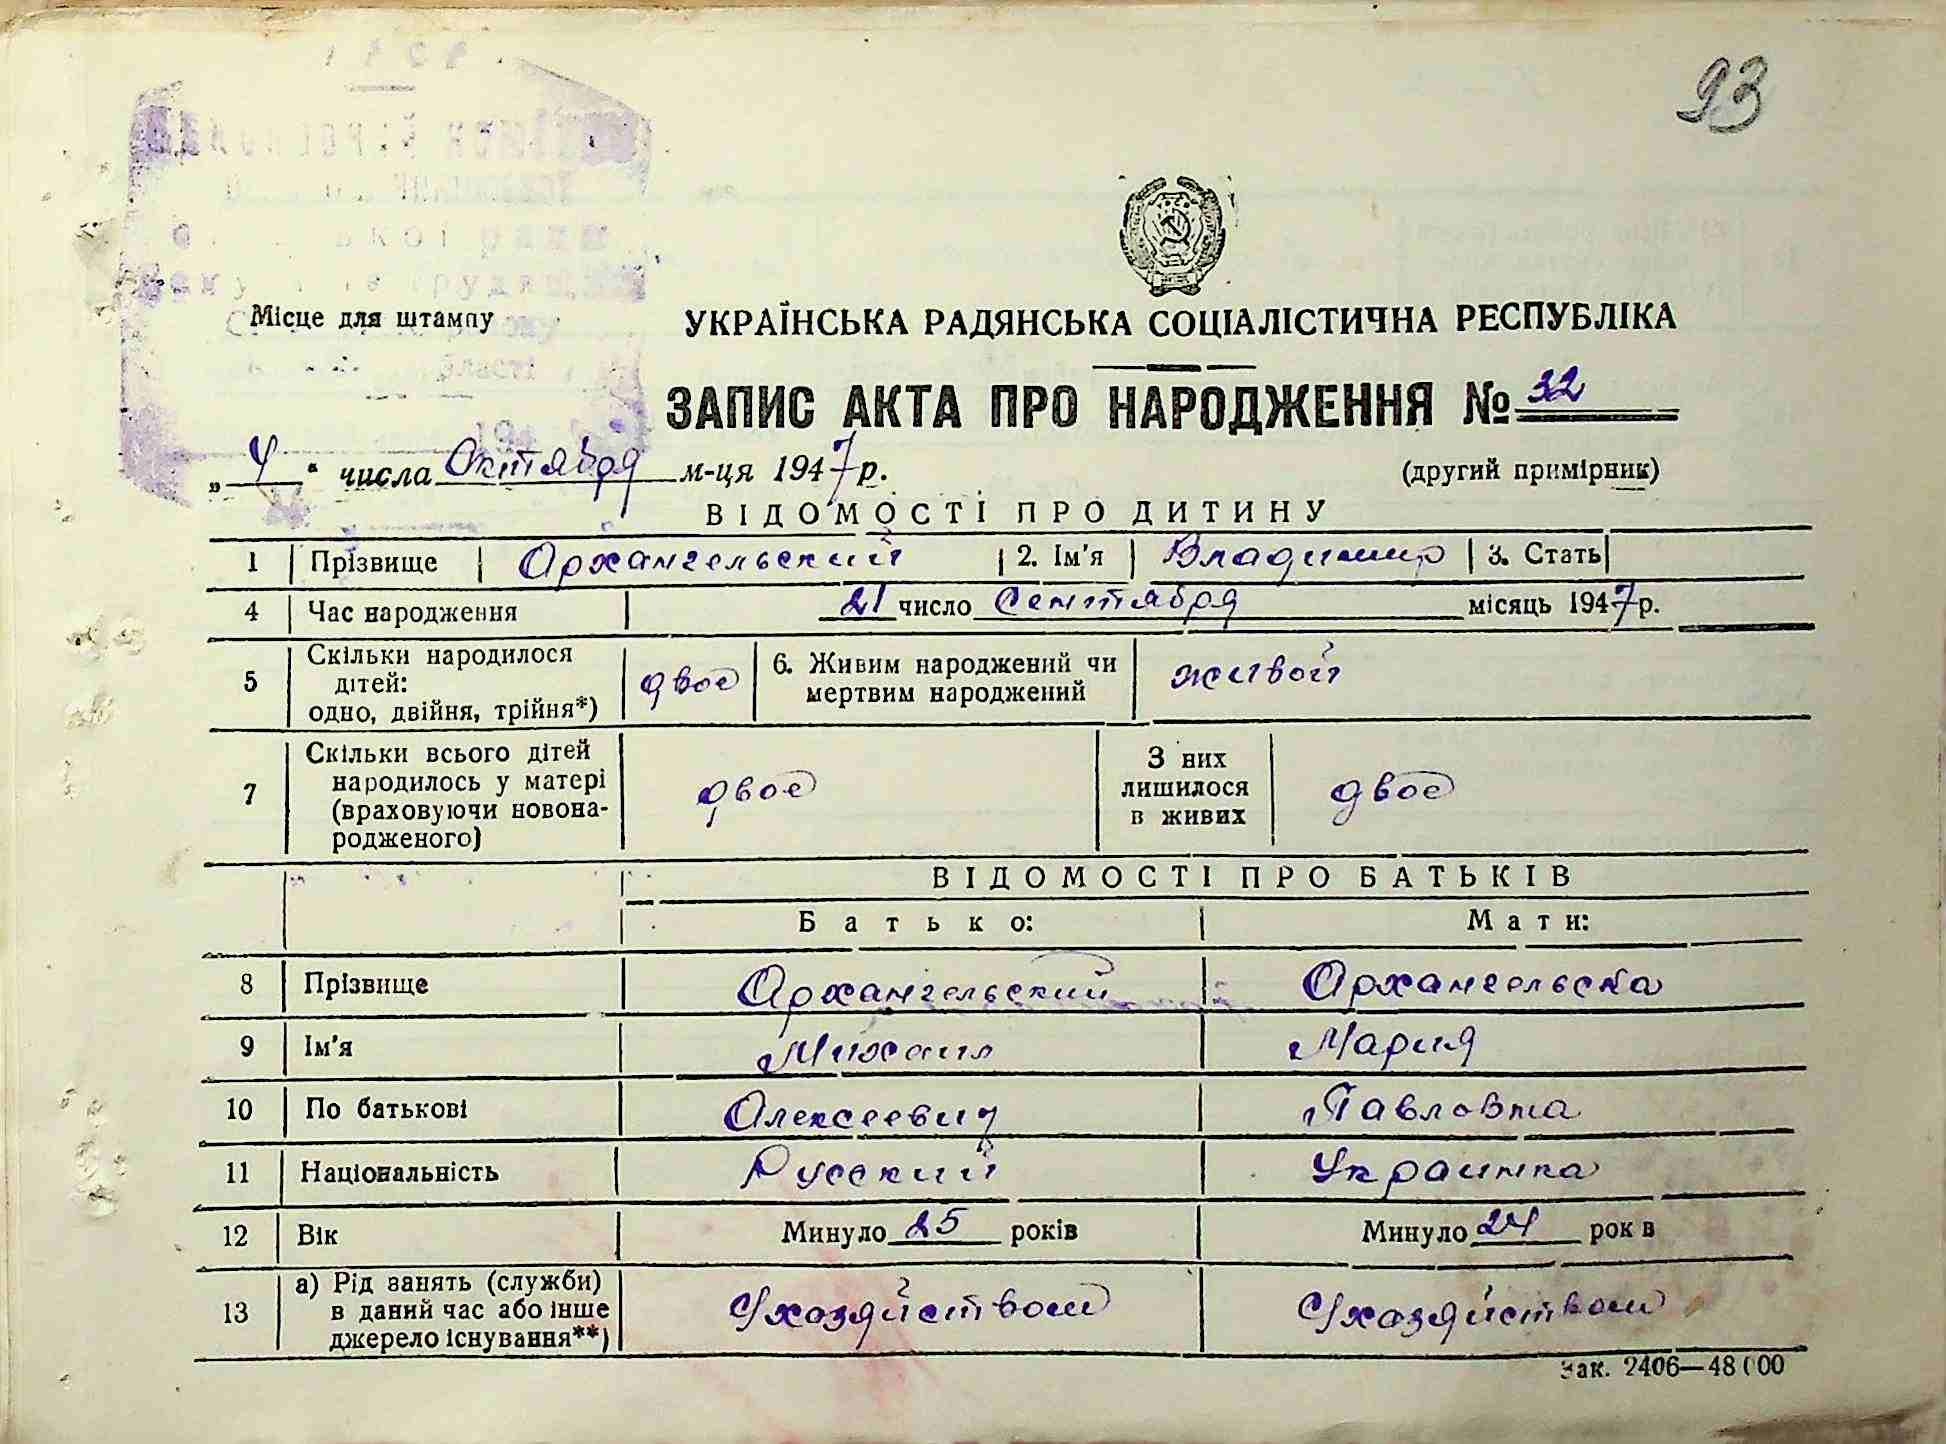 93
Місце для штампу
УКРАЇНСЬКА РАДЯНСЬКА СОЦІАЛІСТИЧНА РЕСПУБЛІКА
ЗАПИС АКТА ПРО НАРОДЖЕННЯ № 32
„4“ числа Октября м-ця 1947 р.
(другий примірник)
ВІДОМОСТІ ПРО ДИТИНУ
1 Прізвище Архангельский 2. Ім'я Владимир 3. Стать
4 Час народження 21 число Сентября місяць 1947 р.
5 Скільки народилося дітей: одно, двійня, трійня*) двое 6. Живим народжений чи мертвим народжений живой
7 Скільки всього дітей народилось у матері (враховуючи новонародженого) двое З них лишилося в живих двое
ВІДОМОСТІ ПРО БАТЬКІВ
Батько: Мати:
8 Прізвище Архангельский Архангельска
9 Ім'я Михаил Мария
10 По батькові Алексеевич Павловна
11 Національність Русский Украинка
12 Вік Минуло 25 років Минуло 24 рок в
13 а) Рід занять (служби) в даний час або інше джерело існування**) Ухозяйством Ухозяйством
Зак. 2406—48000